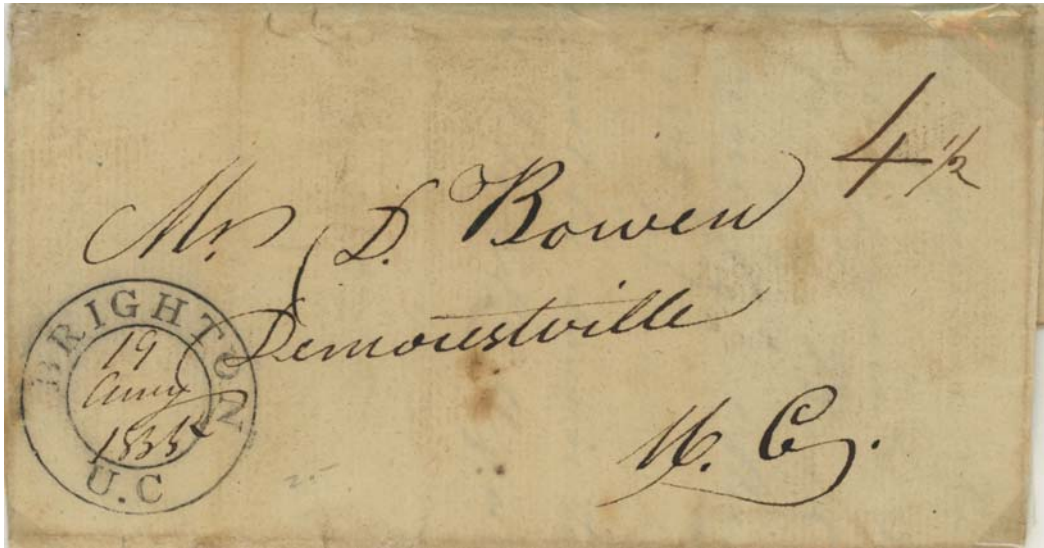 4 1/2
Mr. D. Bowen
Demorestville
U. C.
BRIGHTON
19
Augt
U.C